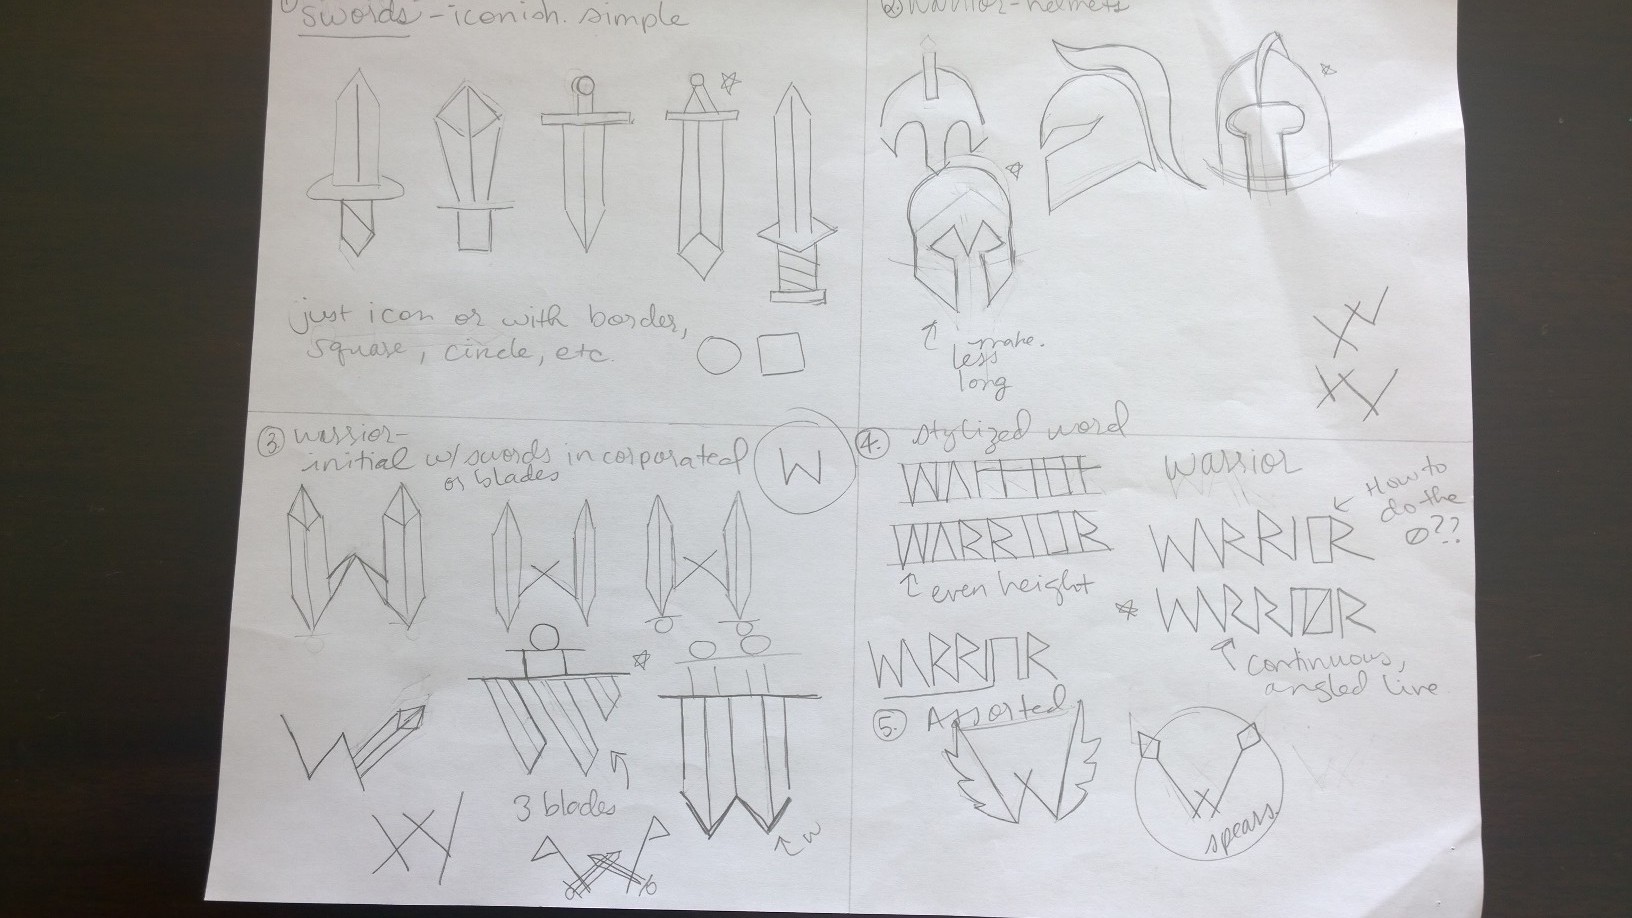 1 swords - iconish. simple
2 warrior-helmets
just icon or with border,
square, circle, etc.
make.
less
long
3 warrior-
initial w/ swords incorporated
or blades
W
3 blades
w
4. stylized word
WARRIOR
WARRIOR
even height
WARRIOR
warrior
How to
do the
O??
WARRIOR
WARRIOR
continuous,
angled line
5. Assorted
spears.